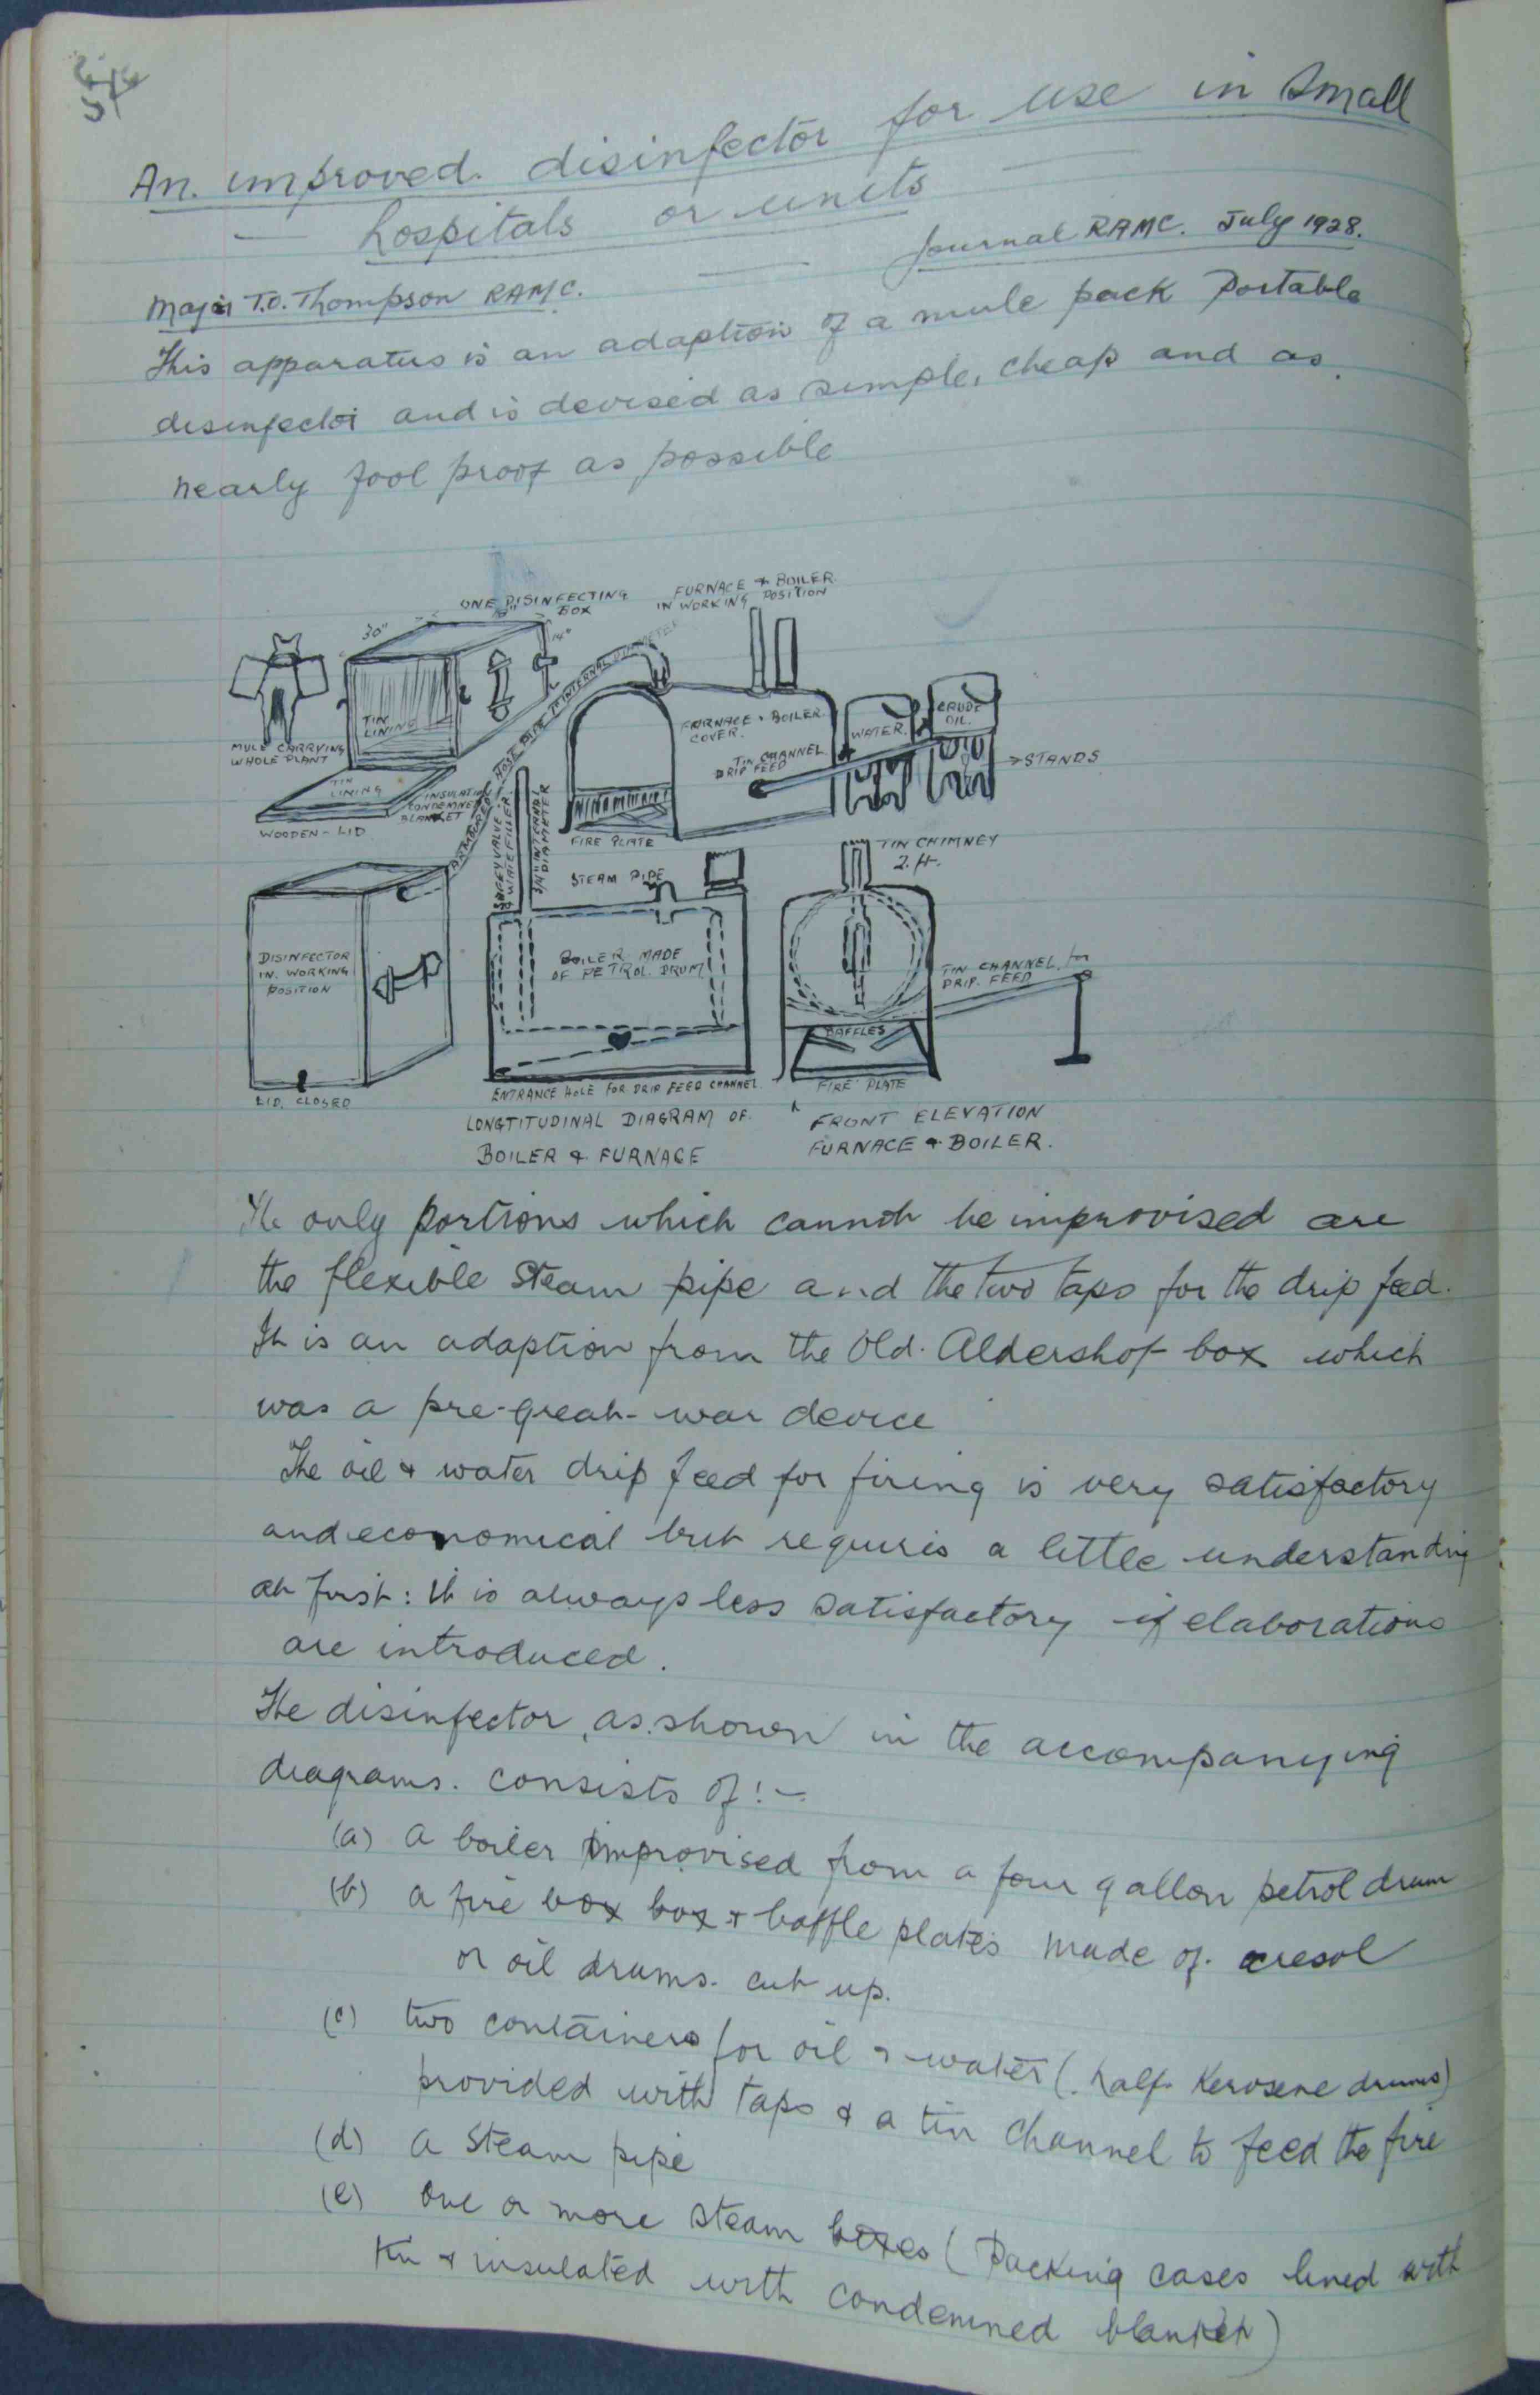 An. improved. disinfector for use in small
hospitals or units
Journal RAMC. July 1928.
Major T.O. Thompson RAMC.
This apparatus is an adaption of a mule pack Portable
disinfector and is devised as simple, cheap and as
nearly fool proof as possible
ONE DISINFECTING
BOX
FURNACE & BOILER
IN WORKING POSITION
30"
18"
14"
TIN
LINING
MULE CARRYING
WHOLE PLANT
TIN
LINING
INSULATING
CONDEMNED
BLANKET
WOODEN - LID
ARMOURED HOSE PIPE 1" INTERNAL DIAMETER
FURNACE & BOILER
COVER.
TIN CHANNEL
DRIP FEED
WATER.
CRUDE
OIL.
STANDS
FIRE PLATE
SAFETY VALVE
& WATER FILLER
3/4" INTERNAL
DIAMETER
STEAM PIPE
TIN CHIMNEY
2. ft.
DISINFECTOR
IN. WORKING
POSITION
BOILER MADE
OF PETROL DRUM
TIN CHANNEL for
DRIP. FEED
BAFFLES
LID. CLOSED
ENTRANCE HOLE FOR DRIP FEED CHANNEL.
FIRE PLATE
LONGTITUDINAL DIAGRAM OF.
BOILER & FURNACE
FRONT ELEVATION
FURNACE & BOILER.
The only portions which cannot be improvised are
the flexible steam pipe and the two taps for the drip feed.
It is an adaption from the Old. Aldershot box which
was a pre-great-war device
The oil & water drip feed for firing is very satisfactory
and economical but requires a little understanding
at first: It is always less satisfactory if elaborations
are introduced.
The disinfector, as shown in the accompanying
diagrams. consists of:-
(a) a boiler improvised from a four gallon petrol drum
(b) a fire box box & baffle plates made of. cresol
or oil drums. cut up.
(c) two containers for oil & water (. half. Kerosene drums)
provided with taps & a tin channel to feed the fire
(d) a steam pipe
(e) one or more steam boxes (Packing cases lined with
tin & insulated with condemned blanket)